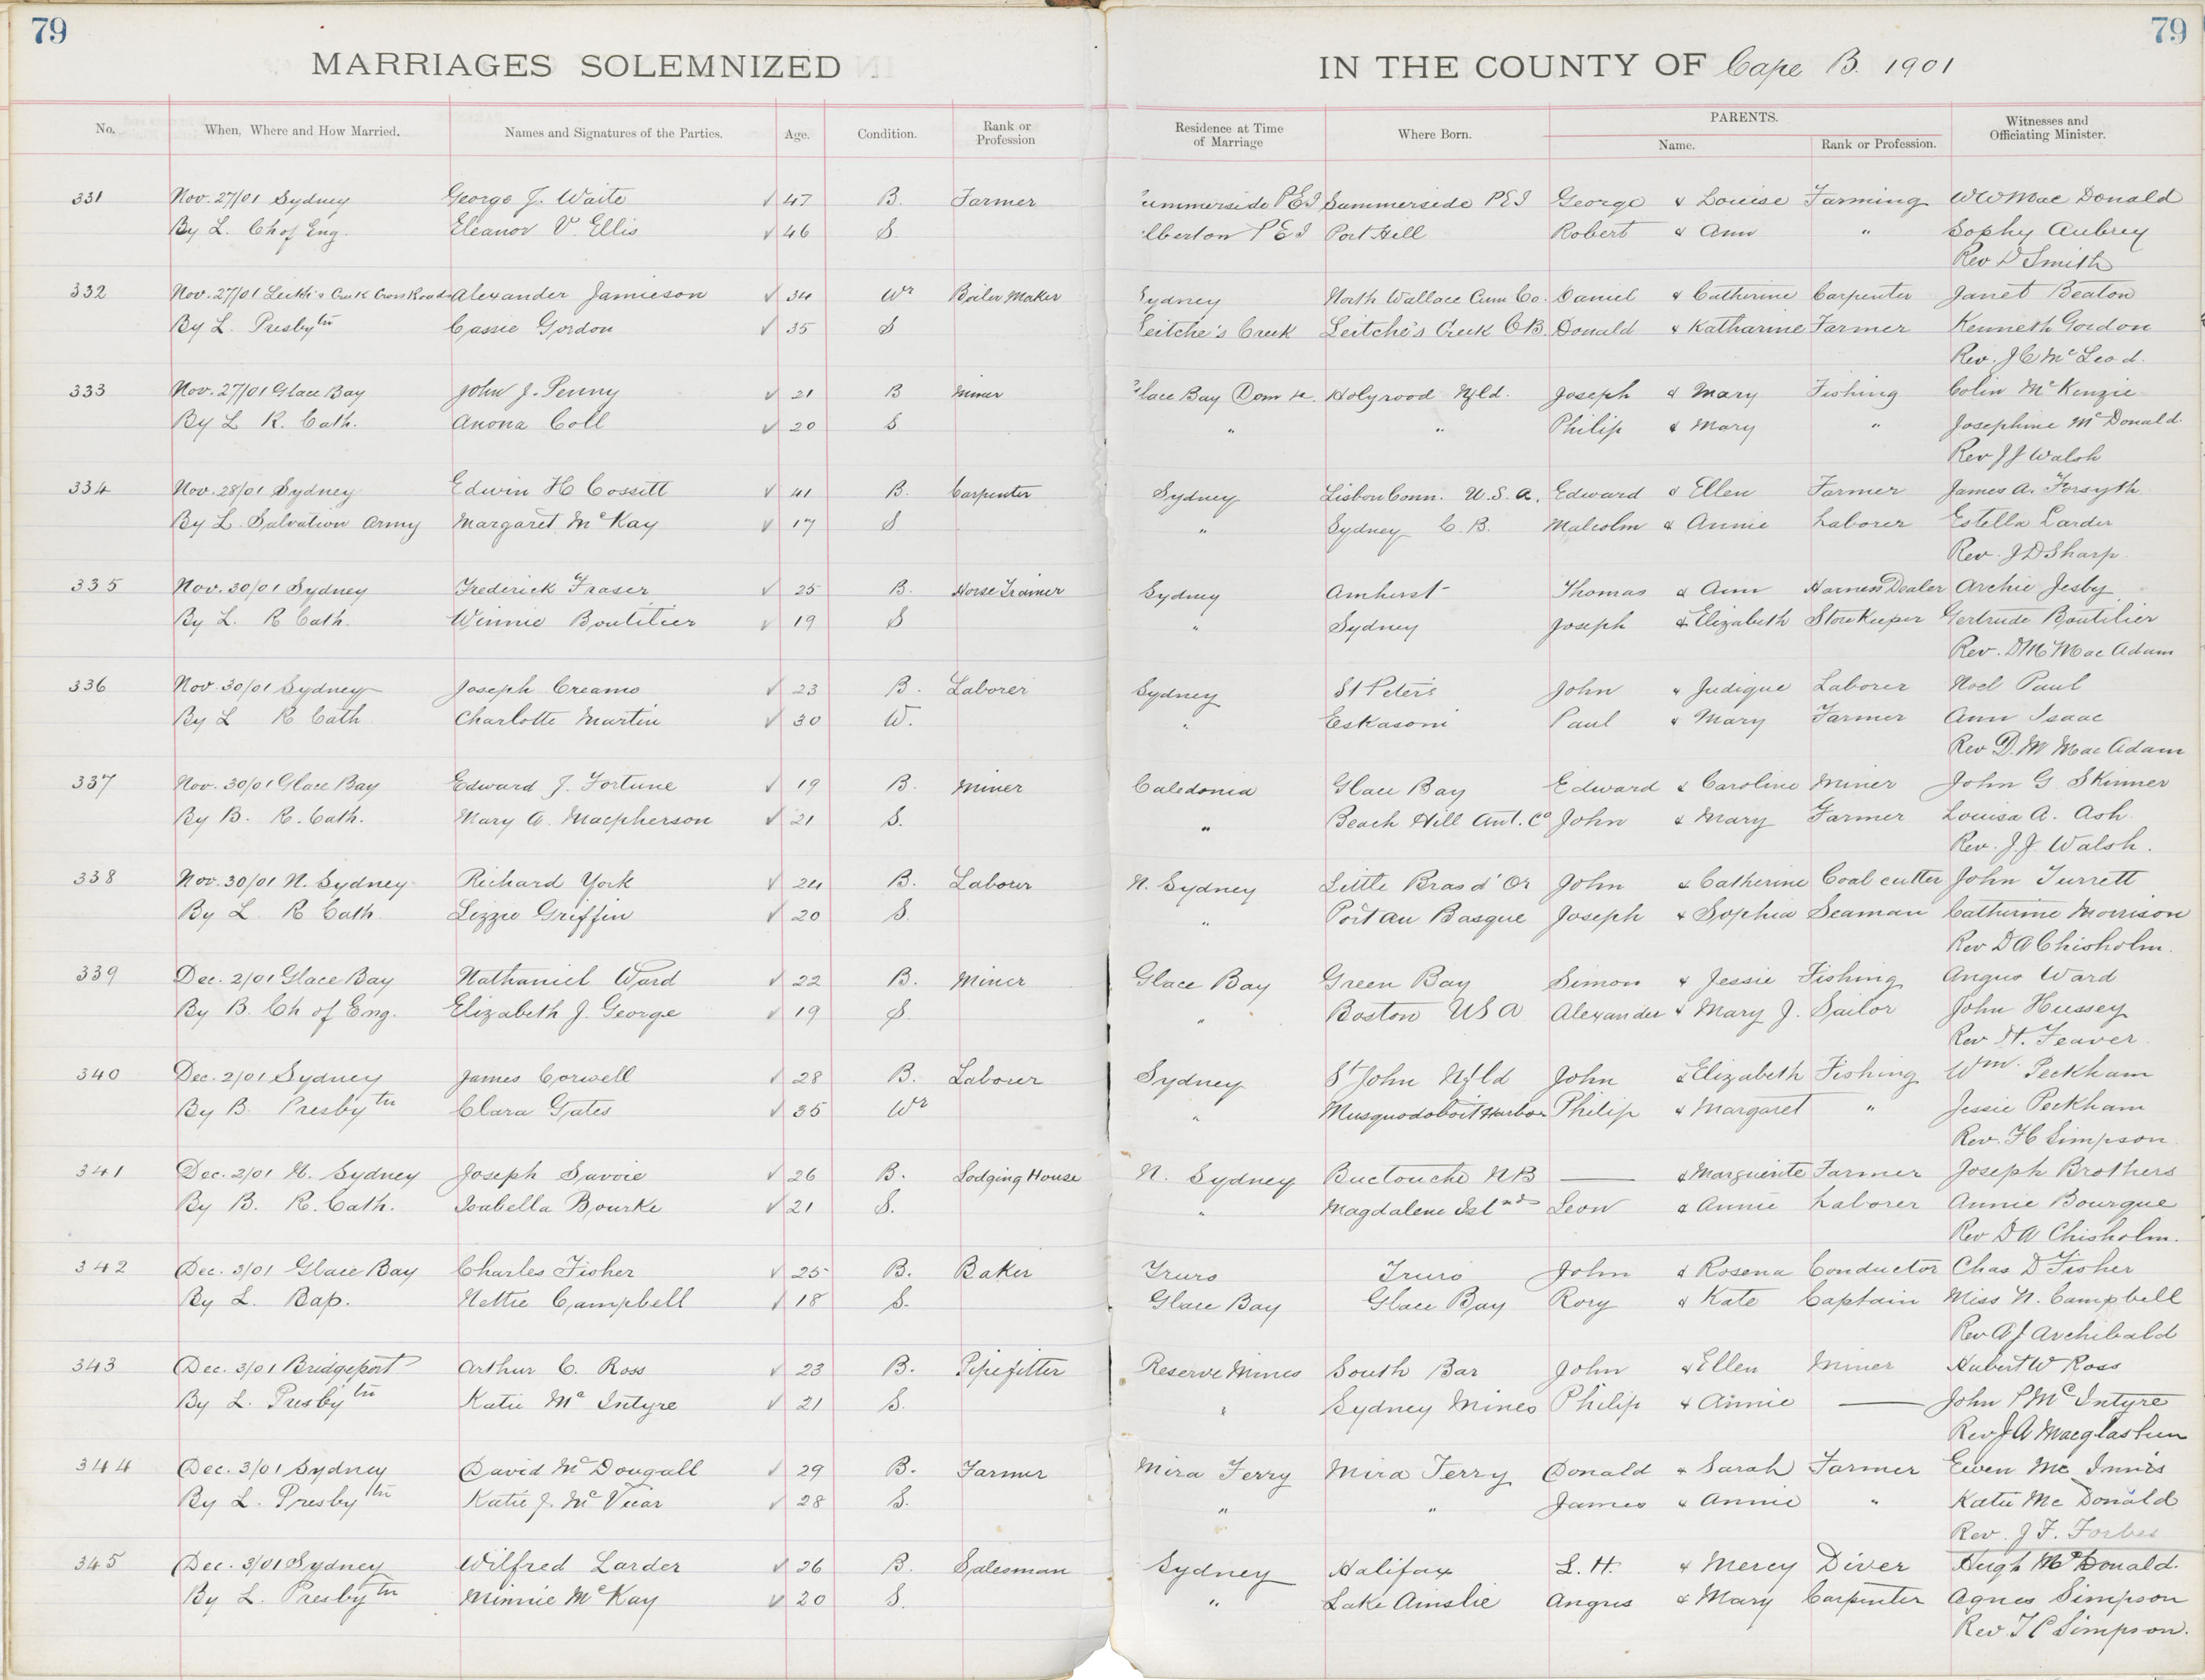 79
79
MARRIAGES SOLEMNIZED
IN THE COUNTY OF Cape B. 1901
No. When, Where and How Married. Names and Signatures of the Parties. Age. Condition. Rank or Profession Residence at Time of Marriage Where Born. PARENTS. Name. Rank or Profession. Witnesses and Officiating Minister.
331 Nov. 27/01 Sydney George J. Waite √ 47 B. Farmer ummerside PEI Summerside PEI George & Louise Farming W W Mac Donald
By L. Ch of Eng. Eleanor V. Ellis √ 46 S. lberton PEI Port Hill Robert & Ann " Sophy Aubrey
Rev D Smith
332 Nov. 27/01 Leitch's Creek Cross Roads Alexander Jamieson √ 34 Wr Boiler Maker Sydney North Wallace Cum Co. Daniel & Catherine Carpenter Janet Beaton
By L. Presbytn Cassie Gordon √ 35 S Leitche's Creek Leitche's Creek C B. Donald & Katharine Farmer Kenneth Gordon
Rev. J C McLeod.
333 Nov. 27/01 Glace Bay John J. Penny √ 21 B Miner lace Bay Dom Holyrood Nfld. Joseph & Mary Fishing Colin McKenzie
By L R. Cath. Anona Coll √ 20 S " " Philip & Mary " Josephine McDonald.
Rev J J Walsh
334 Nov. 28/01 Sydney Edwin H Cossitt √ 41 B. Carpenter Sydney Lisbon Conn. U.S.A. Edward & Ellen Farmer James A. Forsyth
By L. Salvation Army Margaret McKay √ 17 S " Sydney C.B. Malcolm & Annie Laborer Estella Larder
Rev. J D Sharp.
335 Nov. 30/01 Sydney Frederick Fraser √ 25 B. Horse Trainer Sydney Amherst Thomas & Ann Harness Dealer Archie Jesby
By L. R Cath. Winnie Boutilier √ 19 S " Sydney Joseph & Elizabeth Store Keeper Gertrude Boutilier
Rev. D M Mac Adam
336 Nov. 30/01 Sydney Joseph Creamo √ 23 B. Laborer Sydney St Peters John & Judique Laborer Noel Paul
By L R Cath Charlotte Martin √ 30 W. " Eskasoni Paul & Mary Farmer Ann Isaac
Rev D. M Mac Adam
337 Nov. 30/01 Glace Bay Edward J. Fortune √ 19 B. Miner Caledonia Glace Bay Edward & Caroline Miner John G Skinner
By B. R. Cath. Mary A. Macpherson √ 21 S. " Beach Hill Ant. Co John & Mary Farmer Louisa A. Ash.
Rev. J. J. Walsh.
338 Nov. 30/01 N. Sydney Richard York √ 24 B. Laborer N. Sydney Little Bras d'Or John & Catherine Coal cutter John Turrett
By L. R Cath. Lizzie Griffin √ 20 S. " Port au Basque Joseph & Sophia Seaman Catherine Morrison
Rev D A Chisholm.
339 Dec. 2/01 Glace Bay Nathaniel Ward √ 22 B. Miner Glace Bay Green Bay Simon & Jessie Fishing Angus Ward
By B. Ch of Eng. Elizabeth J. George √ 19 S. " Boston U S A Alexander & Mary J. Sailor John Hussey
Rev H. Feaver.
340 Dec. 2/01 Sydney James Corwell √ 28 B. Laborer Sydney St John Nfld John & Elizabeth Fishing Wm. Peckham
By B. Presbytn Clara Gates √ 35 Wr " Musquodoboit Harbor Philip & Margaret " Jessie Peckham
Rev. F C Simpson
341 Dec. 2/01 N. Sydney Joseph Savoie √ 26 B. Lodging House N. Sydney Buctouche NB — & Marguerite Farmer Joseph Brothers
By B. R. Cath. Isabella Bourke √ 21 S. " Magdalene Islnds Leon & Annie Laborer Annie Bourque
Rev D A Chisholm.
342 Dec. 3/01 Glace Bay Charles Fisher √ 25 B. Baker Truro Truro John & Rosena Conductor Chas D Fisher
By L. Bap. Nettie Campbell √ 18 S. Glace Bay Glace Bay Rory & Kate Captain Miss N. Campbell
Rev A J Archibald
343 Dec. 3/01 Bridgeport Arthur C. Ross √ 23 B. Pipefitter Reserve Mines South Bar John & Ellen Miner Hubert W Ross
By L. Presbytn Katie McIntyre √ 21 S. " Sydney Mines Philip & Annie — John P McIntyre
Rev J A Macglashen
344 Dec. 3/01 Sydney David McDougall √ 29 B. Farmer Mira Ferry Mira Ferry Donald & Sarah Farmer Ewen Mc Innis
By L. Presbytn Katie J. McVicar √ 28 S. " " James & Annie " Katie Mc Donald
Rev. J. F. Forbes
345 Dec. 3/01 Sydney Wilfred Larder √ 26 B. Salesman Sydney Halifax L. H. & Mercy Diver Hugh McDonald.
By L. Presbytn Minnie McKay √ 20 S. " Lake Ainslie Angus & Mary Carpenter Agnes Simpson
Rev. F C Simpson.